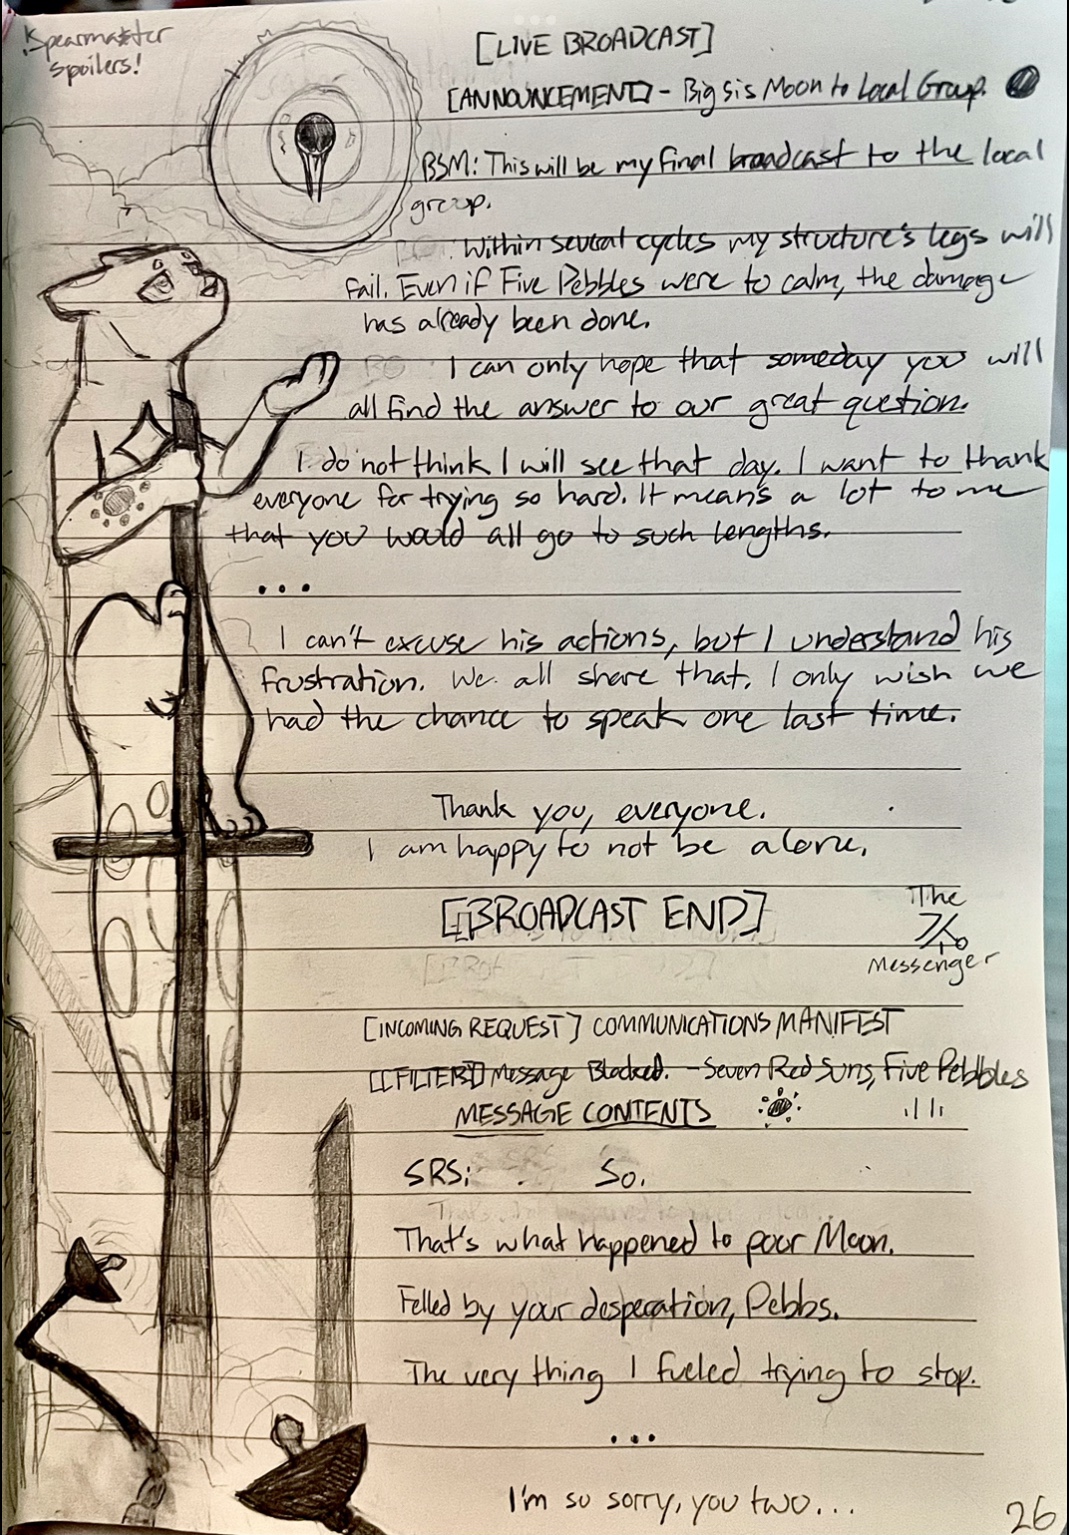 !Spearmaster
spoilers!
[LIVE BROADCAST]
[ANNOUNCEMENT] - Big Sis Moon to Local Group.
BSM: This will be my final broadcast to the local
group.
Within several cycles my structure's legs will
fail. Even if Five Pebbles were to calm, the damage
has already been done.
I can only hope that someday you will
all find the answer to our great question.
I do not think I will see that day. I want to thank
everyone for trying so hard. It means a lot to me
that you would all go to such lengths.
...
I can't excuse his actions, but I understand his
frustration. We all share that. I only wish we
had the chance to speak one last time.
Thank you, everyone.
I am happy to not be alone.
[BROADCAST END]
The
Messenger
[INCOMING REQUEST] COMMUNICATIONS MANIFEST
[[FILTER]] Message Blocked. - Seven Red Suns, Five Pebbles
MESSAGE CONTENTS
SRS: So.
That's what happened to poor Moon.
Felled by your desperation, Pebbs.
The very thing I fueled trying to stop.
...
I'm so sorry, you two...
26